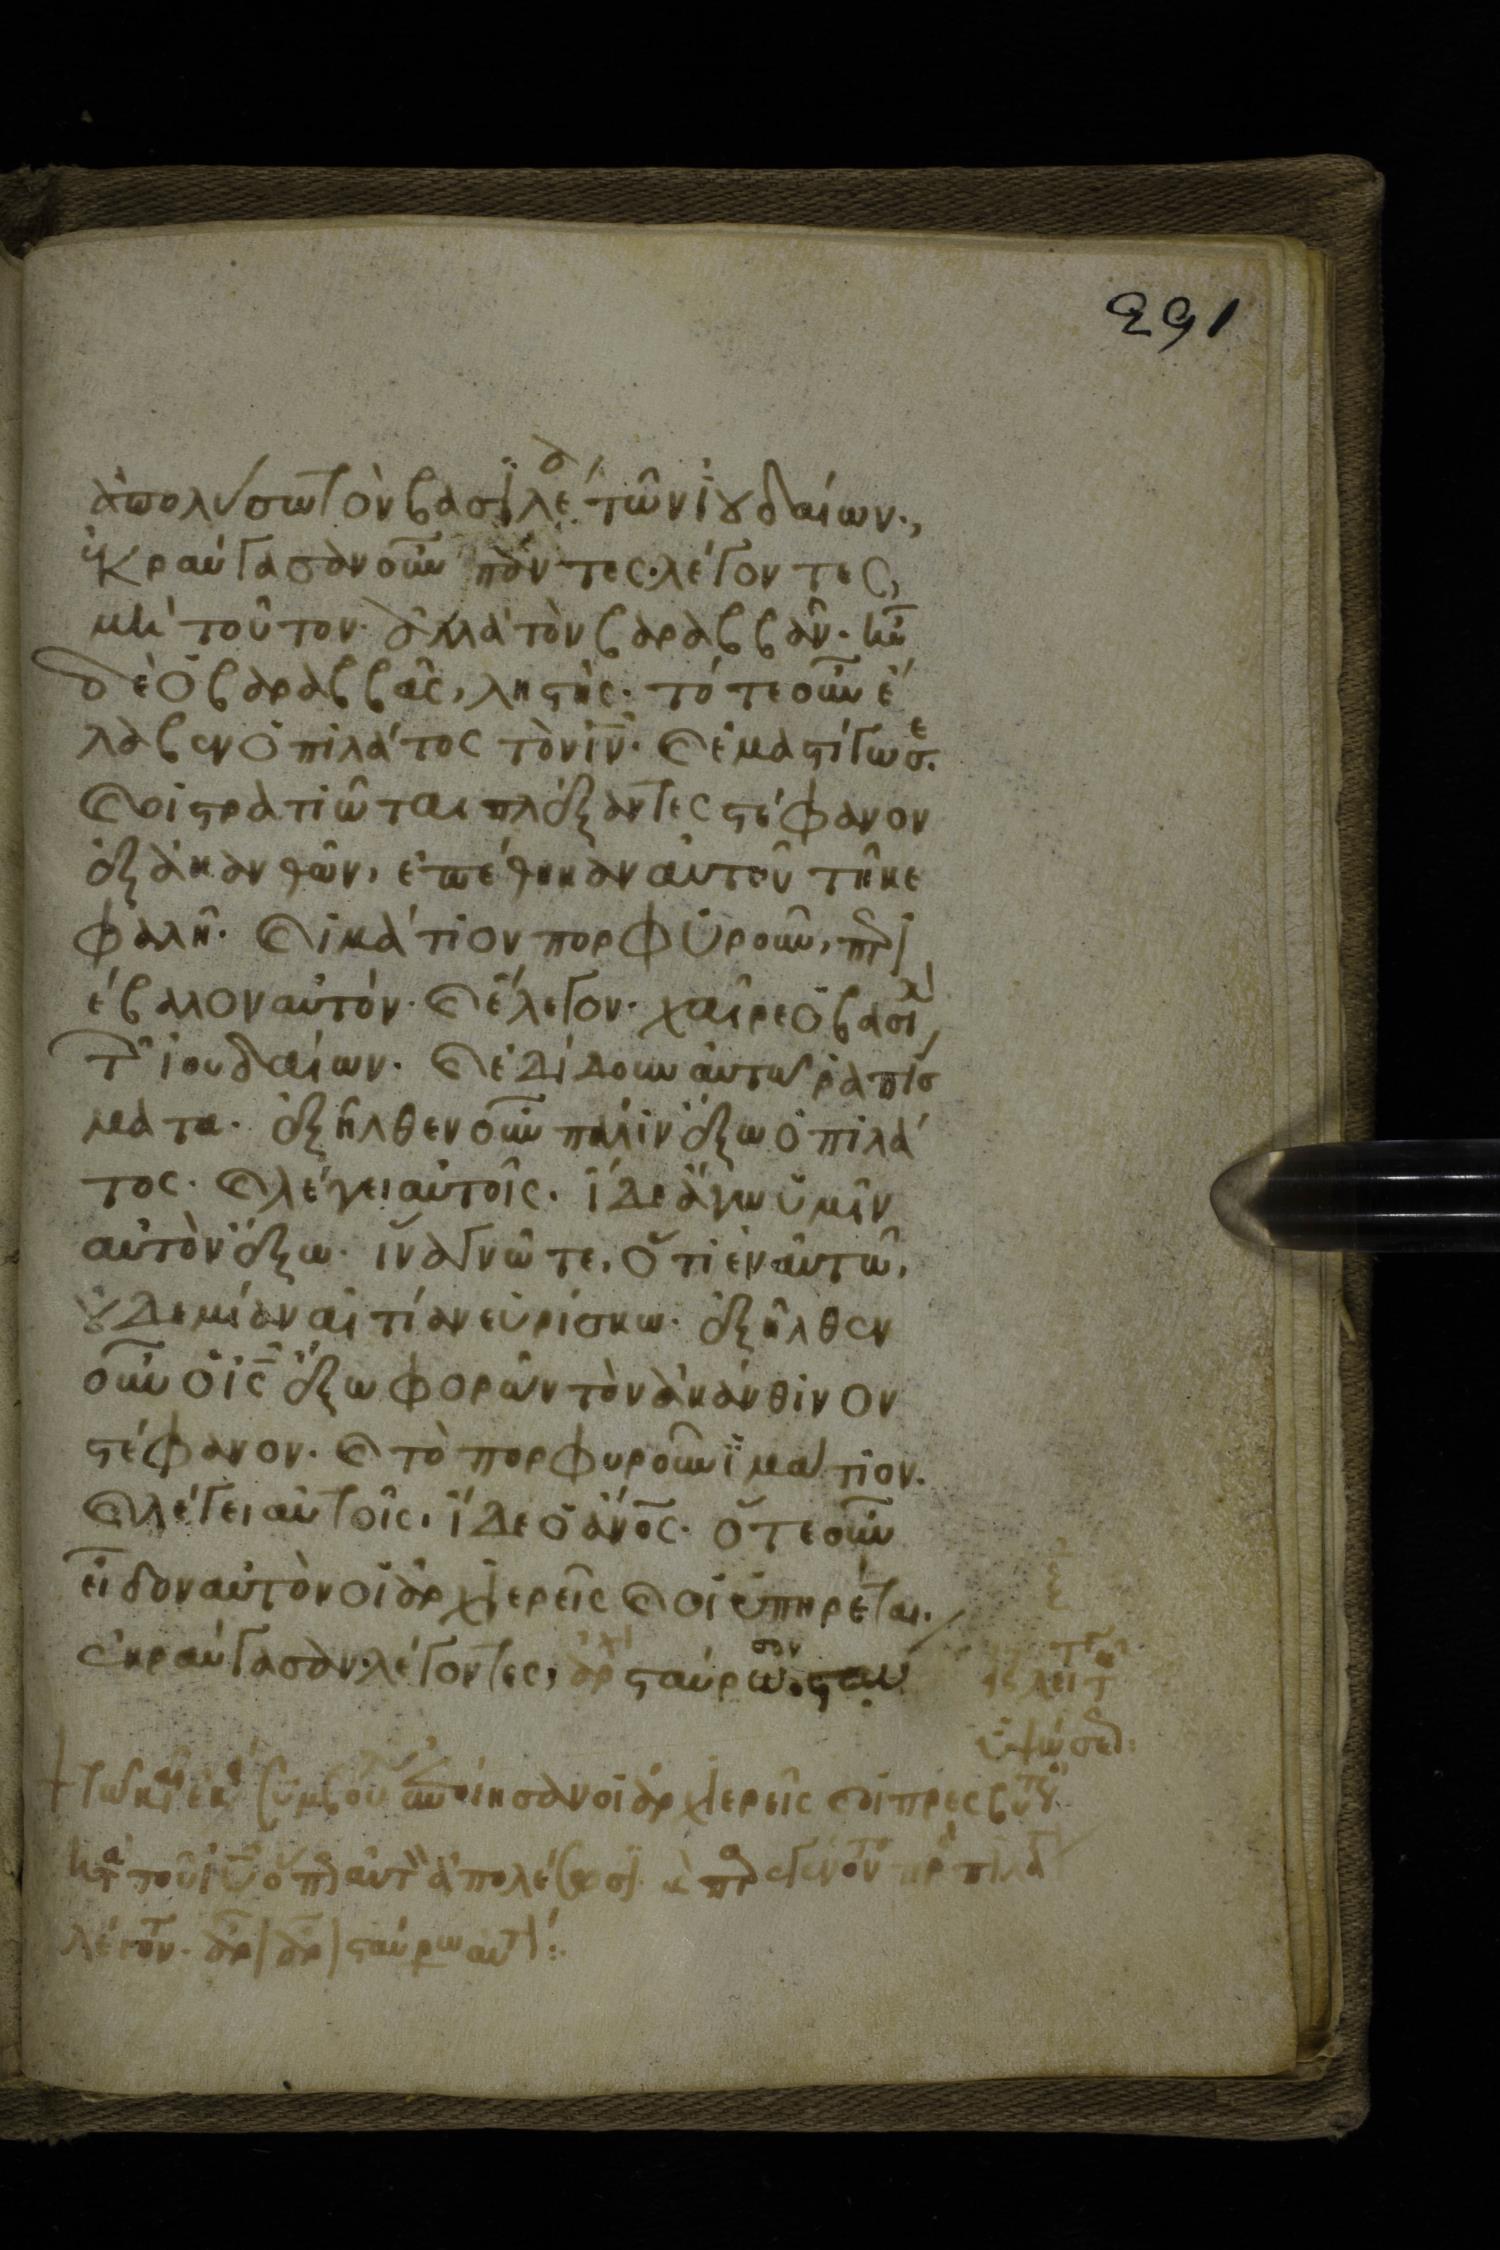 291
ἀπολύσω τὸν βασιλέα τῶν ἰουδαίων·,
ἐκραύγασαν οὖν πάντες· λέγοντες,
μὴ τοῦτον· ἀλλὰ τὸν βαραββᾶν· ἦν
δὲ ὁ βαραββᾶς, ληστής· τότε οὖν ἔ
λαβεν ὁ πιλάτος τὸν ἰν̅· καὶ ἐμαστίγωσε·
καὶ οἱ στρατιῶται πλέξαντες στέφανον
ἐξ ἀκανθῶν, ἐπέθηκαν αὐτοῦ τῆ κε
φαλῆ· καὶ ἱμάτιον πορφυροῦν, περι
έβαλλον αὐτόν· καὶ ἔλεγον· χαῖρε ὁ βασιλ
τῶν ἰουδαίων· καὶ ἐδίδουν αὐτῶ ῥαπίσ
ματα· ἐξῆλθεν οὖν πάλιν ἔξω ὁ πιλά
τος· καὶ λέγει αὐτοῖς· ἴδε ἄγω ὑμῖν
αὐτὸν ἔξω· ἵνα γνῶτε, ὅτι ἐν αὐτῶ,
οὐδεμίαν αἰτίαν εὑρίσκω· ἐξῆλθεν
οὖν ὁ ἰς̅ ἔξω φορῶν τὸν ἀκάνθινον
στέφανον· καὶ τὸ πορφυροῦν ἱμάτιον·
καὶ λέγει αὐτοῖς, ἴδε ὁ ἄνο̅ς· ὅτε οὖν
εἶδον αὐτὸν οἱ ἀρχιερεῖς καὶ οἱ ὑπηρέται·
ἐκραύγασαν λέγοντες, ἀρχ σταύρωσον
τῶ καιρ ἐκ συμβου ἐποίησαν οἱ ἀρχιερεῖς καὶ οἱ πρεσβυτε
κατ τοῦ ἰυ̅ ὅπ αὐτ ἀπολέσωσι
λέγοντ· ἆρ ἆρ σταύρω αὐτ